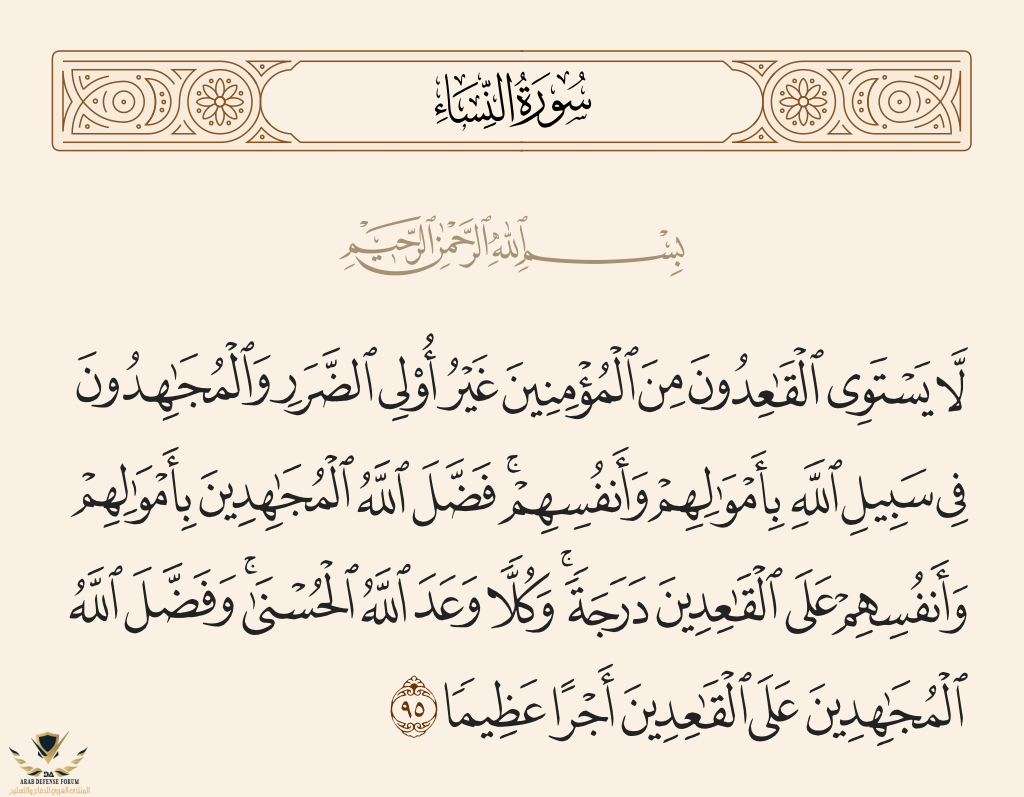 سُورَةُ النِّسَاءِ
بِسْمِ ٱللَّهِ ٱلرَّحْمَٰنِ ٱلرَّحِيمِ
لَّا يَسْتَوِى ٱلْقَٰعِدُونَ مِنَ ٱلْمُؤْمِنِينَ غَيْرُ أُو۟لِى ٱلضَّرَرِ وَٱلْمُجَٰهِدُونَ
فِى سَبِيلِ ٱللَّهِ بِأَمْوَٰلِهِمْ وَأَنفُسِهِمْ ۚ فَضَّلَ ٱللَّهُ ٱلْمُجَٰهِدِينَ بِأَمْوَٰلِهِمْ
وَأَنفُسِهِمْ عَلَى ٱلْقَٰعِدِينَ دَرَجَةً ۚ وَكُلًّا وَعَدَ ٱللَّهُ ٱلْحُسْنَىٰ ۚ وَفَضَّلَ ٱللَّهُ
ٱلْمُجَٰهِدِينَ عَلَى ٱلْقَٰعِدِينَ أَجْرًا عَظِيمًا ٩٥
ARAB DEFENSE FORUM
المنتدى العربي للدفاع والتسليح